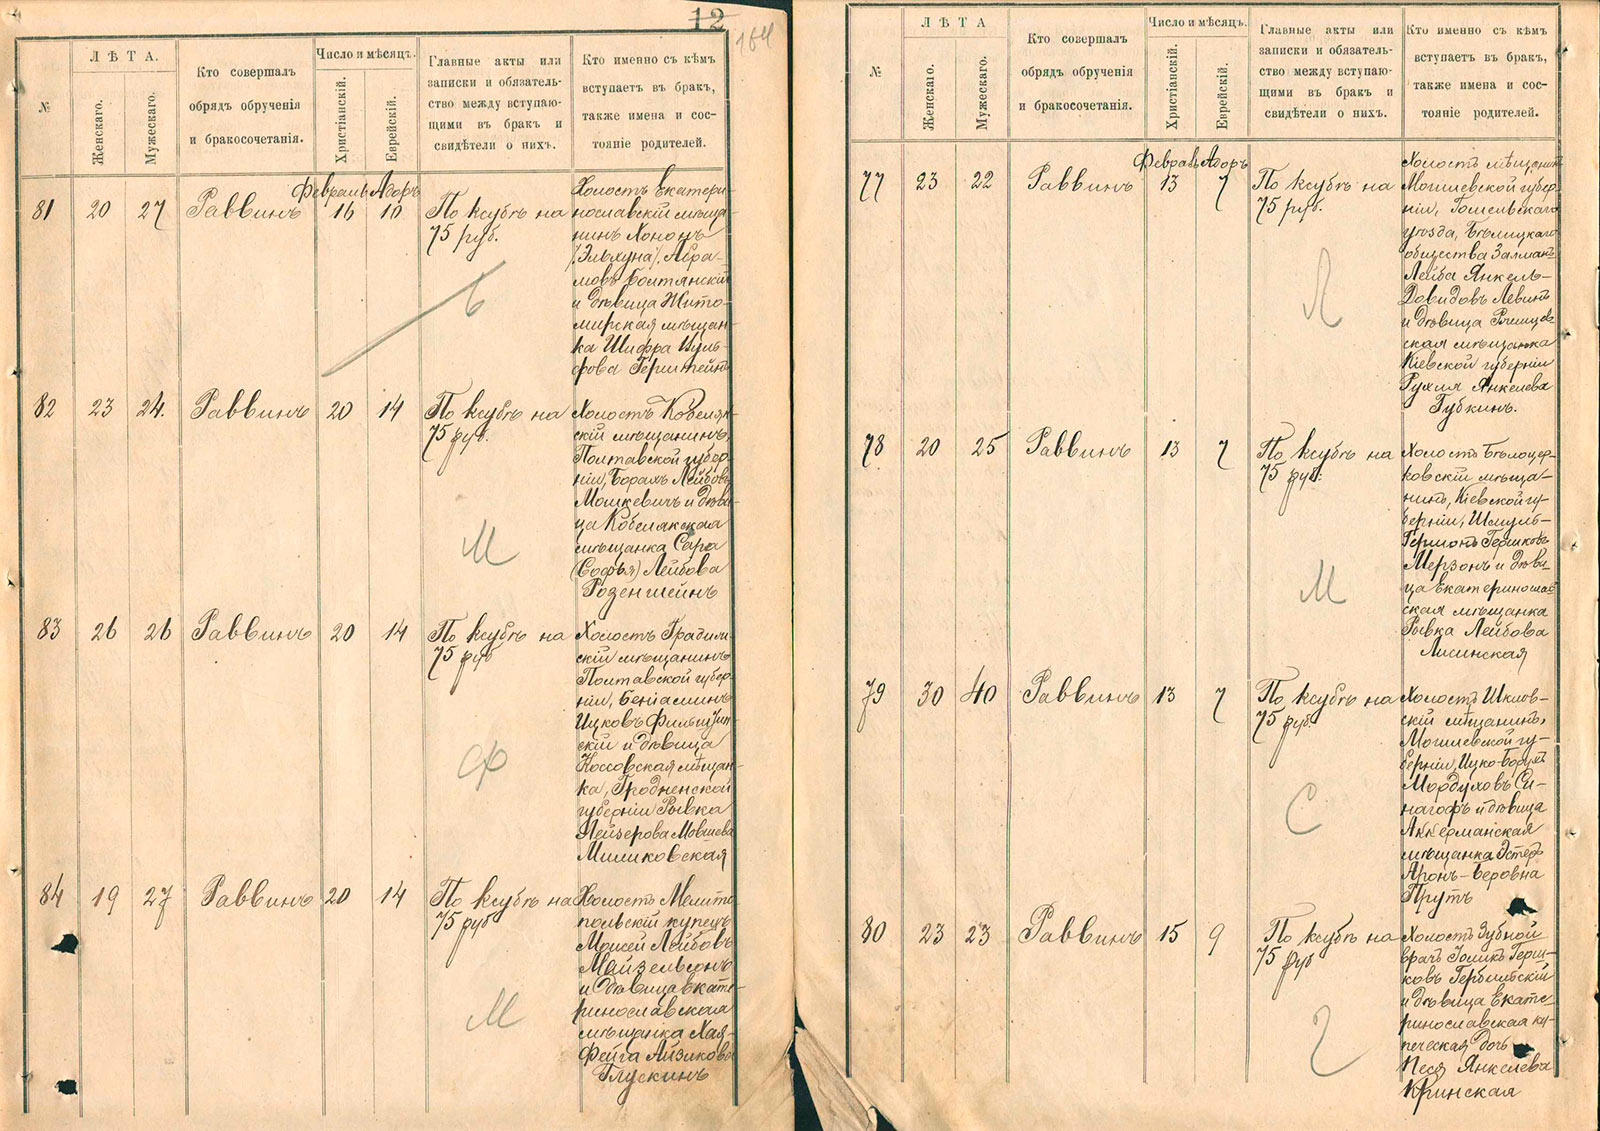 12
164
№
ЛѢТА.
Женскаго.
Мужескаго.
Кто совершалъ
обрядъ обрученія
и бракосочетанія.
Число и мѣсяцъ.
Христіанскій.
Еврейскій.
Главные акты или
записки и обязатель-
ство между вступаю-
щими въ бракъ и
свидѣтели о нихъ.
Кто именно съ кѣмъ
вступаетъ въ бракъ,
также имена и сос-
тояніе родителей.
Февраль Адоръ
81 20 27 Раввинъ 16 10
По ксубѣ на
75 руб.
Холостъ Екатери-
нославскій мѣща-
нинъ Хононъ
(Эльхуна) Абра-
мовъ Болтянскій
и дѣвица Жито-
мирская мѣщан-
ка Шифра Вуль-
фова Герштейнъ
Ь
82 23 24. Раввинъ 20 14
По ксубѣ на
75 руб.
Холостъ Кобеляк-
скій мѣщанинъ,
Полтавской губер-
ніи, Борахъ Лейбовъ
Мошкевичъ и дѣви-
ца Кобелякская
мѣщанка Сара
(Софья) Лейбова
Розеншейнъ
М
83 26 26 Раввинъ 20 14
По ксубѣ на
75 руб
Холостъ Градиж-
скій мѣщанинъ
Полтавской губер-
ніи, Беніаминъ
Ицковъ
скій и дѣвица
Коссовская мѣщан-
ка, Гродненской
губерніи Рывка
Лейзерова Мовшева
Миликовская
Ф
84 19 27 Раввинъ 20 14
По ксубѣ на
75 руб
Холостъ Мелито
польскій купецъ
Моисей Лейбовъ
Мейзельсонъ
и дѣвица Екате-
ринославская
мѣщанка Хая-
Фейга Айзикова
Глускинъ
М
№
ЛѢТА
Женскаго.
Мужескаго.
Кто совершалъ
обрядъ обрученія
и бракосочетанія.
Число и мѣсяцъ.
Христіанскій.
Еврейскій.
Главные акты или
записки и обязатель-
ство между вступаю-
щими въ бракъ и
свидѣтели о нихъ.
Кто именно съ кѣмъ
вступаетъ въ бракъ,
также имена и сос-
тояніе родителей.
Февраль Адоръ
77 23 22 Раввинъ 13 7
По ксубѣ на
75 руб.
Холостъ мѣщанинъ
Могилевской губер-
ніи, Гомельскаго
уѣзда, Бѣлицкаго
общества Залманъ
Лейба Янкель-
Довидовъ Левинъ
и дѣвица Ржищев-
ская мѣщанка
Кіевской губерніи
Рухля Янкелева
Губкинъ.
Л
78 20 25 Раввинъ 13 7
По ксубѣ на
75 руб.
Холостъ Бѣлоцер-
ковскій мѣща-
нинъ, Кіевской гу-
берніи, Шмуль-
Гершонъ Гершковъ
Мерзонъ и дѣви-
ца Екатеринослав
ская мѣщанка
Рывка Лейбова
Лисинская
М
79 30 40 Раввинъ 13 7
По ксубѣ на
75 руб.
Холостъ Шклов-
скій мѣщанинъ,
Могилевской гу-
берніи, Ицко-Борухъ
Мордуховъ Си-
нагофъ и дѣвица
Аккерманская
мѣщанка Эстеръ
Аронъ-Беровна
Прутъ
С
80 23 23 Раввинъ 15 9
По ксубѣ на
75 руб
Холостъ Зубной
врачъ Герш-
ковъ
и дѣвица Екате-
ринославская ку-
печеская дочь
Песя Янкелева
Кринская
Г